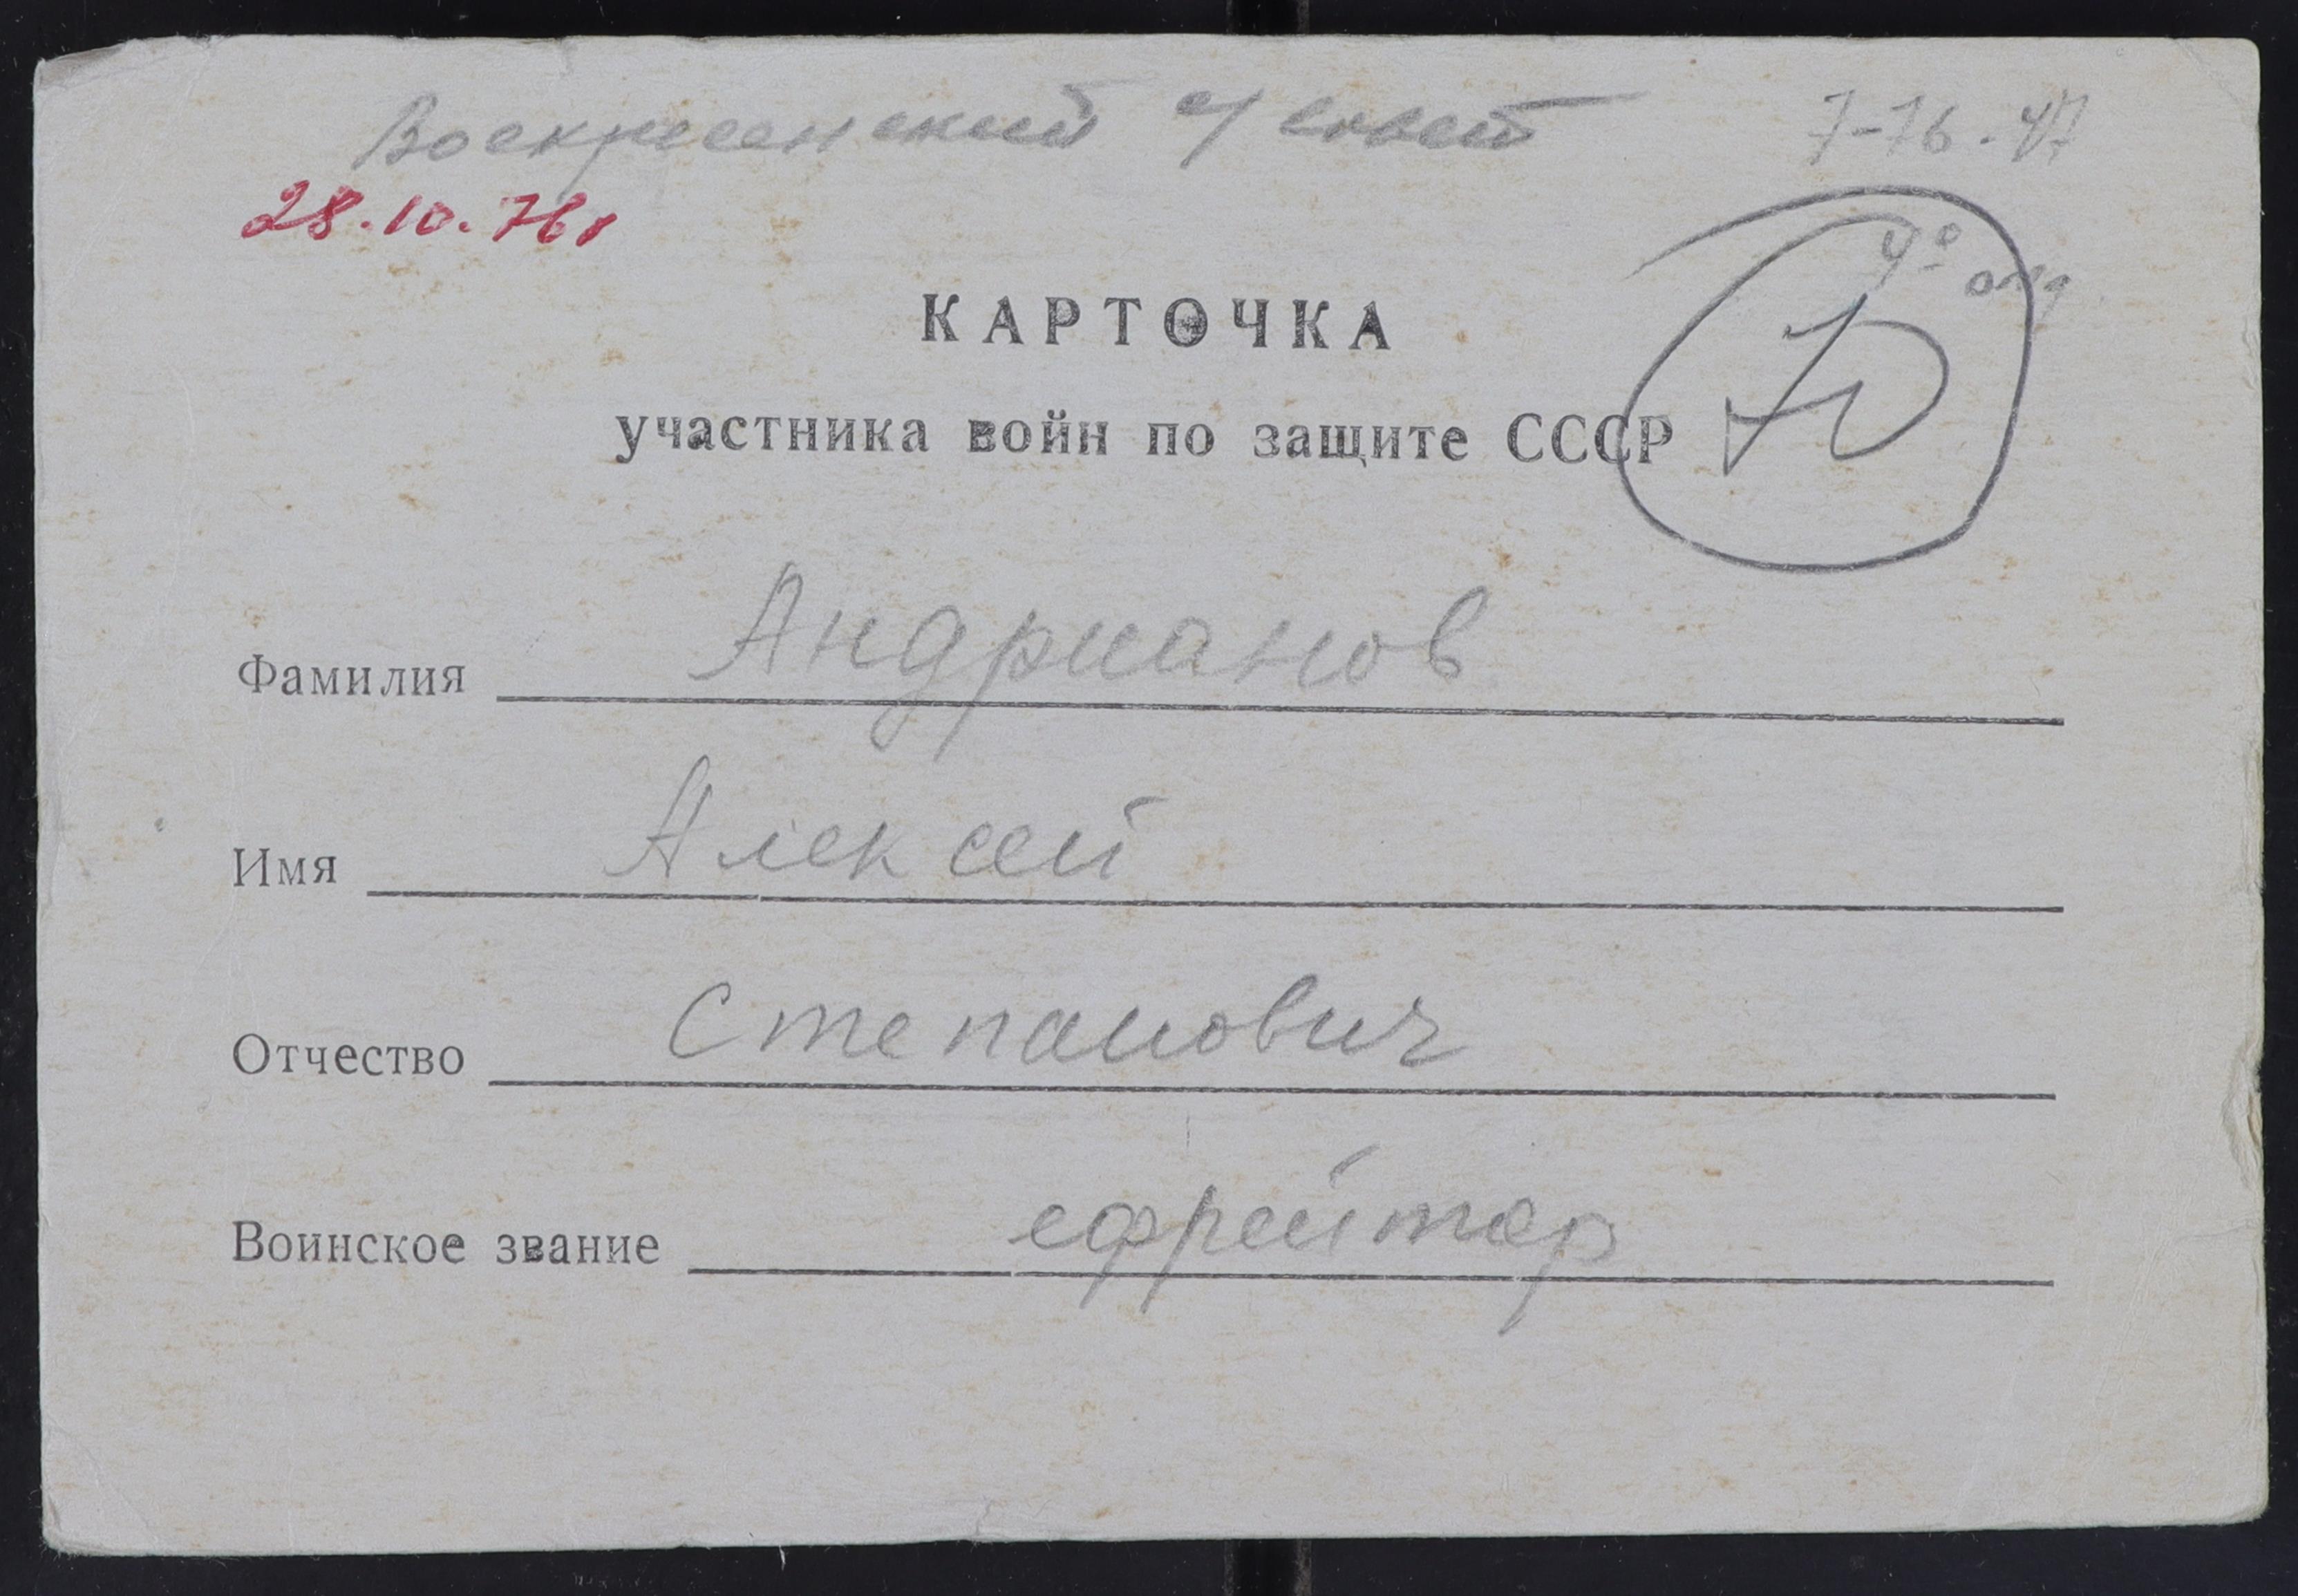 Воскресенский с/совет 7-76.47
28.10.76г
КАРТОЧКА
участника войн по защите СССР
Фамилия Андрианов
Имя Алексей
Отчество Степанович
Воинское звание ефрейтор